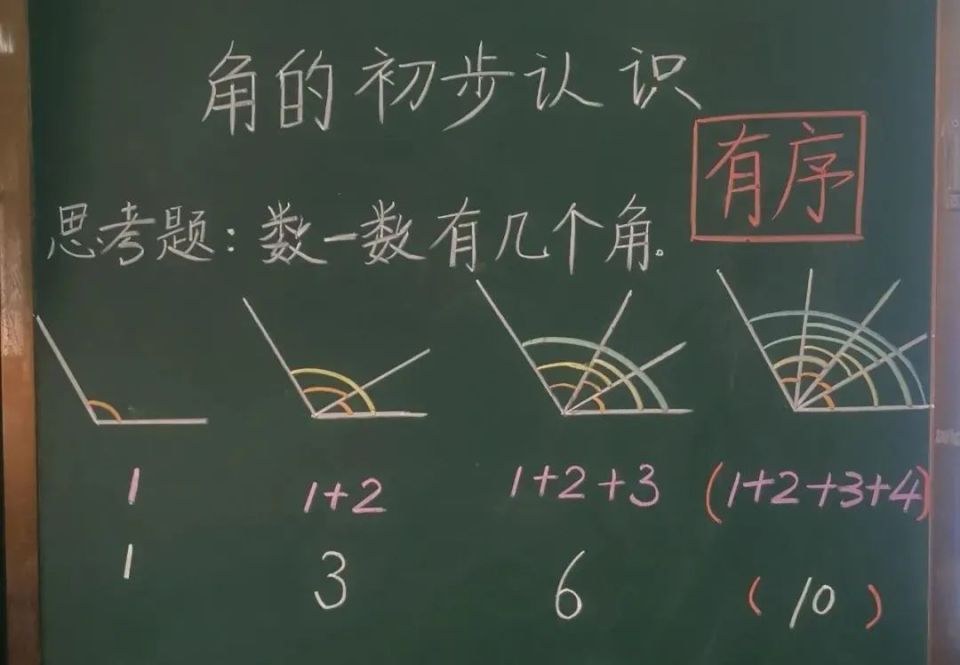 角的初步认识
有序
思考题：数一数有几个角.
1 1+2 1+2+3 (1+2+3+4)
1 3 6 (10)